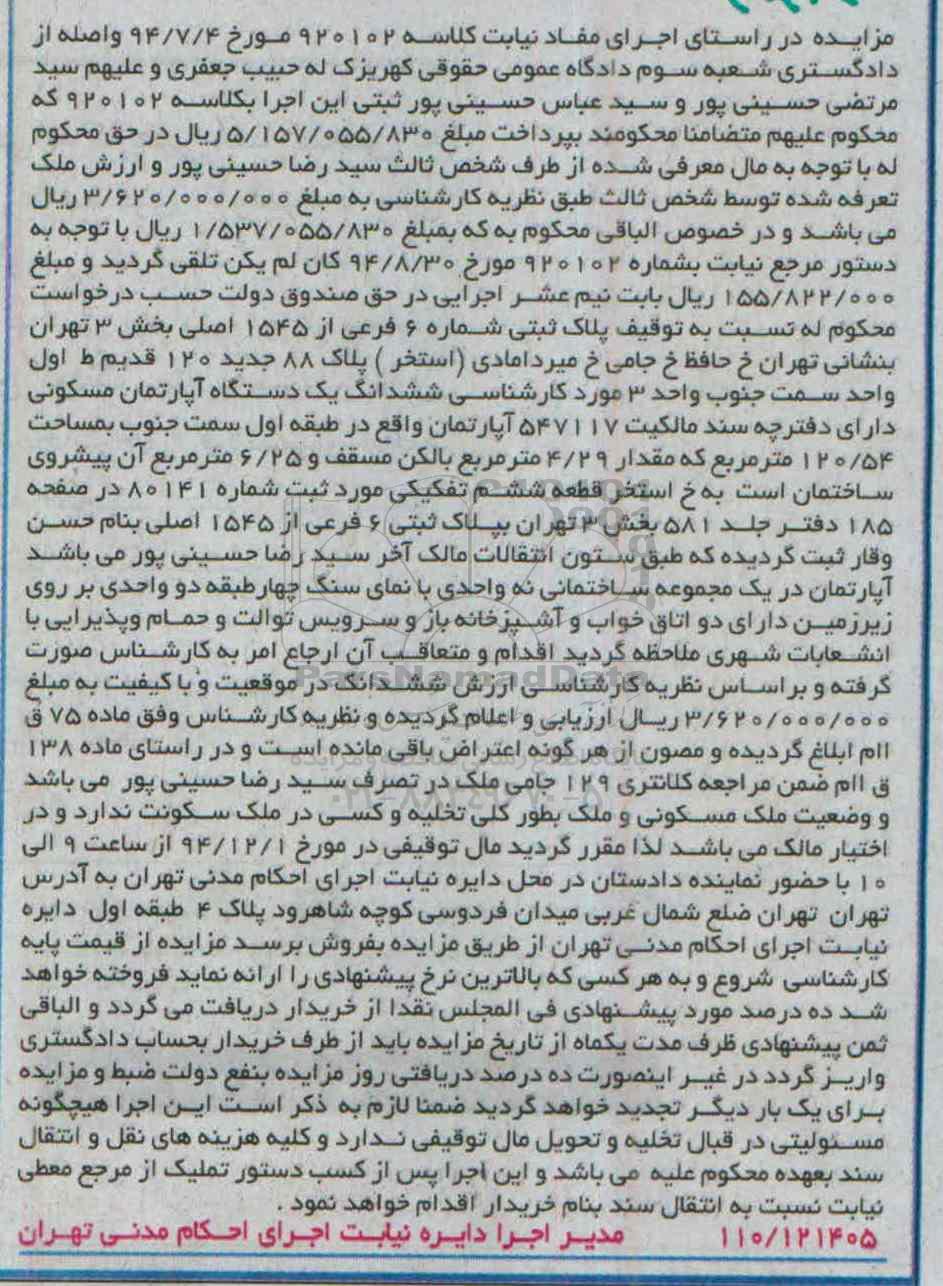 مزایده در راستای اجرای مفاد نیابت کلاسه ۹۲۰۱۰۲ مورخ ۹۴/۷/۴ واصله از
دادگستری شعبه سوم دادگاه عمومی حقوقی کهریزک له حبیب جعفری و علیهم سید
مرتضی حسینی پور و سید عباس حسینی پور ثبتی این اجرا بکلاسه ۹۲۰۱۰۲ که
محکوم علیهم متضامنا محکومند بپرداخت مبلغ ۵/۱۵۷/۰۵۵/۸۳۰ ریال در حق محکوم
له با توجه به مال معرفی شده از طرف شخص ثالث سید رضا حسینی پور و ارزش ملک
تعرفه شده توسط شخص ثالث طبق نظریه کارشناسی به مبلغ ۳/۶۲۰/۰۰۰/۰۰۰ ریال
می باشد و در خصوص الباقی محکوم به که بمبلغ ۱/۵۳۷/۰۵۵/۸۳۰ ریال با توجه به
دستور مرجع نیابت بشماره ۹۲۰۱۰۲ مورخ ۹۴/۸/۳۰ کان لم یکن تلقی گردید و مبلغ
۱۵۵/۸۲۲/۰۰۰ ریال بابت نیم عشر اجرایی در حق صندوق دولت حسب درخواست
محکوم له نسبت به توقیف پلاک ثبتی شماره ۶ فرعی از ۱۵۴۵ اصلی بخش ۳ تهران
بنشانی تهران خ حافظ خ جامی خ میردامادی (استخر) پلاک ۸۸ جدید ۱۲۰ قدیم ط اول
واحد سمت جنوب واحد ۳ مورد کارشناسی ششدانگ یک دستگاه آپارتمان مسکونی
دارای دفترچه سند مالکیت ۵۴۷۱۱۷ آپارتمان واقع در طبقه اول سمت جنوب بمساحت
۱۲۰/۵۴ مترمربع که مقدار ۴/۲۹ مترمربع بالکن مسقف و ۶/۲۵ مترمربع آن پیشروی
ساختمان است به خ استخر قطعه ششم تفکیکی مورد ثبت شماره ۸۰۱۴۱ در صفحه
۱۸۵ دفتر جلد ۵۸۱ بخش ۳ تهران بپلاک ثبتی ۶ فرعی از ۱۵۴۵ اصلی بنام حسن
وقار ثبت گردیده که طبق ستون انتقالات مالک آخر سید رضا حسینی پور می باشد
آپارتمان در یک مجموعه ساختمانی نه واحدی با نمای سنگ چهارطبقه دو واحدی بر روی
زیرزمین دارای دو اتاق خواب و آشپزخانه باز و سرویس توالت و حمام وپذیرایی با
انشعابات شهری ملاحظه گردید اقدام و متعاقب آن ارجاع امر به کارشناس صورت
گرفته و بر اساس نظریه کارشناسی ارزش ششدانگ در موقعیت و با کیفیت به مبلغ
۳/۶۲۰/۰۰۰/۰۰۰ ریال ارزیابی و اعلام گردیده و نظریه کارشناس وفق ماده ۷۵ ق
اام ابلاغ گردیده و مصون از هر گونه اعتراض باقی مانده است و در راستای ماده ۱۳۸
ق اام ضمن مراجعه کلانتری ۱۲۹ جامی ملک در تصرف سید رضا حسینی پور می باشد
و وضعیت ملک مسکونی و ملک بطور کلی تخلیه و کسی در ملک سکونت ندارد و در
اختیار مالک می باشد لذا مقرر گردید مال توقیفی در مورخ ۹۴/۱۲/۱ از ساعت ۹ الی
۱۰ با حضور نماینده دادستان در محل دایره نیابت اجرای احکام مدنی تهران به آدرس
تهران تهران ضلع شمال غربی میدان فردوسی کوچه شاهرود پلاک ۴ طبقه اول دایره
نیابت اجرای احکام مدنی تهران از طریق مزایده بفروش برسد مزایده از قیمت پایه
کارشناسی شروع و به هر کسی که بالاترین نرخ پیشنهادی را ارائه نماید فروخته خواهد
شد ده درصد مورد پیشنهادی فی المجلس نقدا از خریدار دریافت می گردد و الباقی
ثمن پیشنهادی ظرف مدت یکماه از تاریخ مزایده باید از طرف خریدار بحساب دادگستری
واریز گردد در غیر اینصورت ده درصد دریافتی روز مزایده بنفع دولت ضبط و مزایده
برای یک بار دیگر تجدید خواهد گردید ضمنا لازم به ذکر است این اجرا هیچگونه
مسئولیتی در قبال تخلیه و تحویل مال توقیفی ندارد و کلیه هزینه های نقل و انتقال
سند بعهده محکوم علیه می باشد و این اجرا پس از کسب دستور تملیک از مرجع معطی
نیابت نسبت به انتقال سند بنام خریدار اقدام خواهد نمود .
۱۱۰/۱۲۱۴۰۵ مدیر اجرا دایره نیابت اجرای احکام مدنی تهران
ParsNamadData